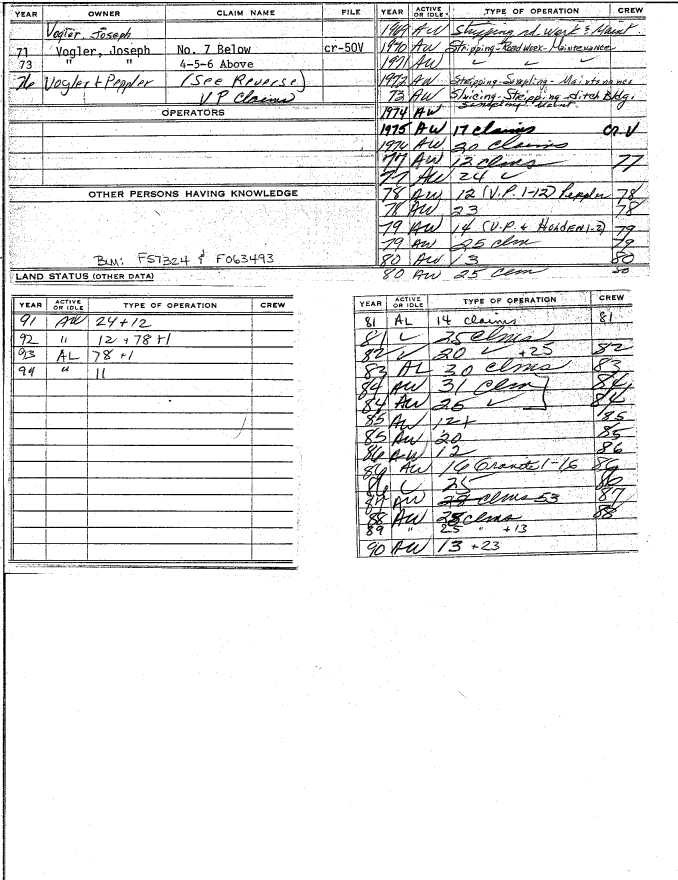 YEAR OWNER CLAIM NAME FILE
Vogler, Joseph
71 Vogler, Joseph No. 7 Below cr-50V
73 " " 4-5-6 Above
76 Vogler & Peppler (See Reverse)
V P Claims
OPERATORS
OTHER PERSONS HAVING KNOWLEDGE
BLM: F57324 & F063493
LAND STATUS (OTHER DATA)
YEAR ACTIVE OR IDLE TYPE OF OPERATION CREW
1969 AW Stripping rd. work & Maint.
1970 AW Stripping-Road Work-Maintenance
1971 AW " " "
1972 AW Stripping-Sampling-Maintenance
73 AW Sluicing-Stripping-ditch Bldg.
Sampling-Maint.
1974 AW
1975 AW 17 claims cr-V
1976 AW 20 Claims
77 AW 12 clms 77
77 AW 24 ✓
78 AW 12 (V.P. 1-12) Peppler 78
78 AW 23 78
79 AW 14 (V.P. & Holden 1-2) 79
79 AW 25 clm 79
80 AW 13 80
80 AW 25 clm 80
YEAR ACTIVE OR IDLE TYPE OF OPERATION CREW
91 AW 24+12
92 " 12 + 78 +1
93 AL 78 +1
94 " 11
YEAR ACTIVE OR IDLE TYPE OF OPERATION CREW
81 AL 14 claims 81
81 ✓ 25 clms
82 ✓ 20 ✓ +25 82
83 AL 30 clms 83
84 AW 31 Clm 84
84 AW 25 ✓ 84
85 AW 12+ 85
85 AW 20 85
86 AW 12 86
86 AW 16 Granite 1-16 86
86 ✓ 25 86
87 AW clms 53 87
88 AW 28 clms 88
89 " 25 " +13
90 AW 13 +23